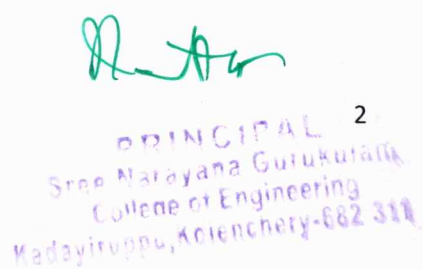 2
PRINCIPAL
Sree Narayana Gurukulam
College of Engineering
Kadayiruppu, Kolenchery-682 311